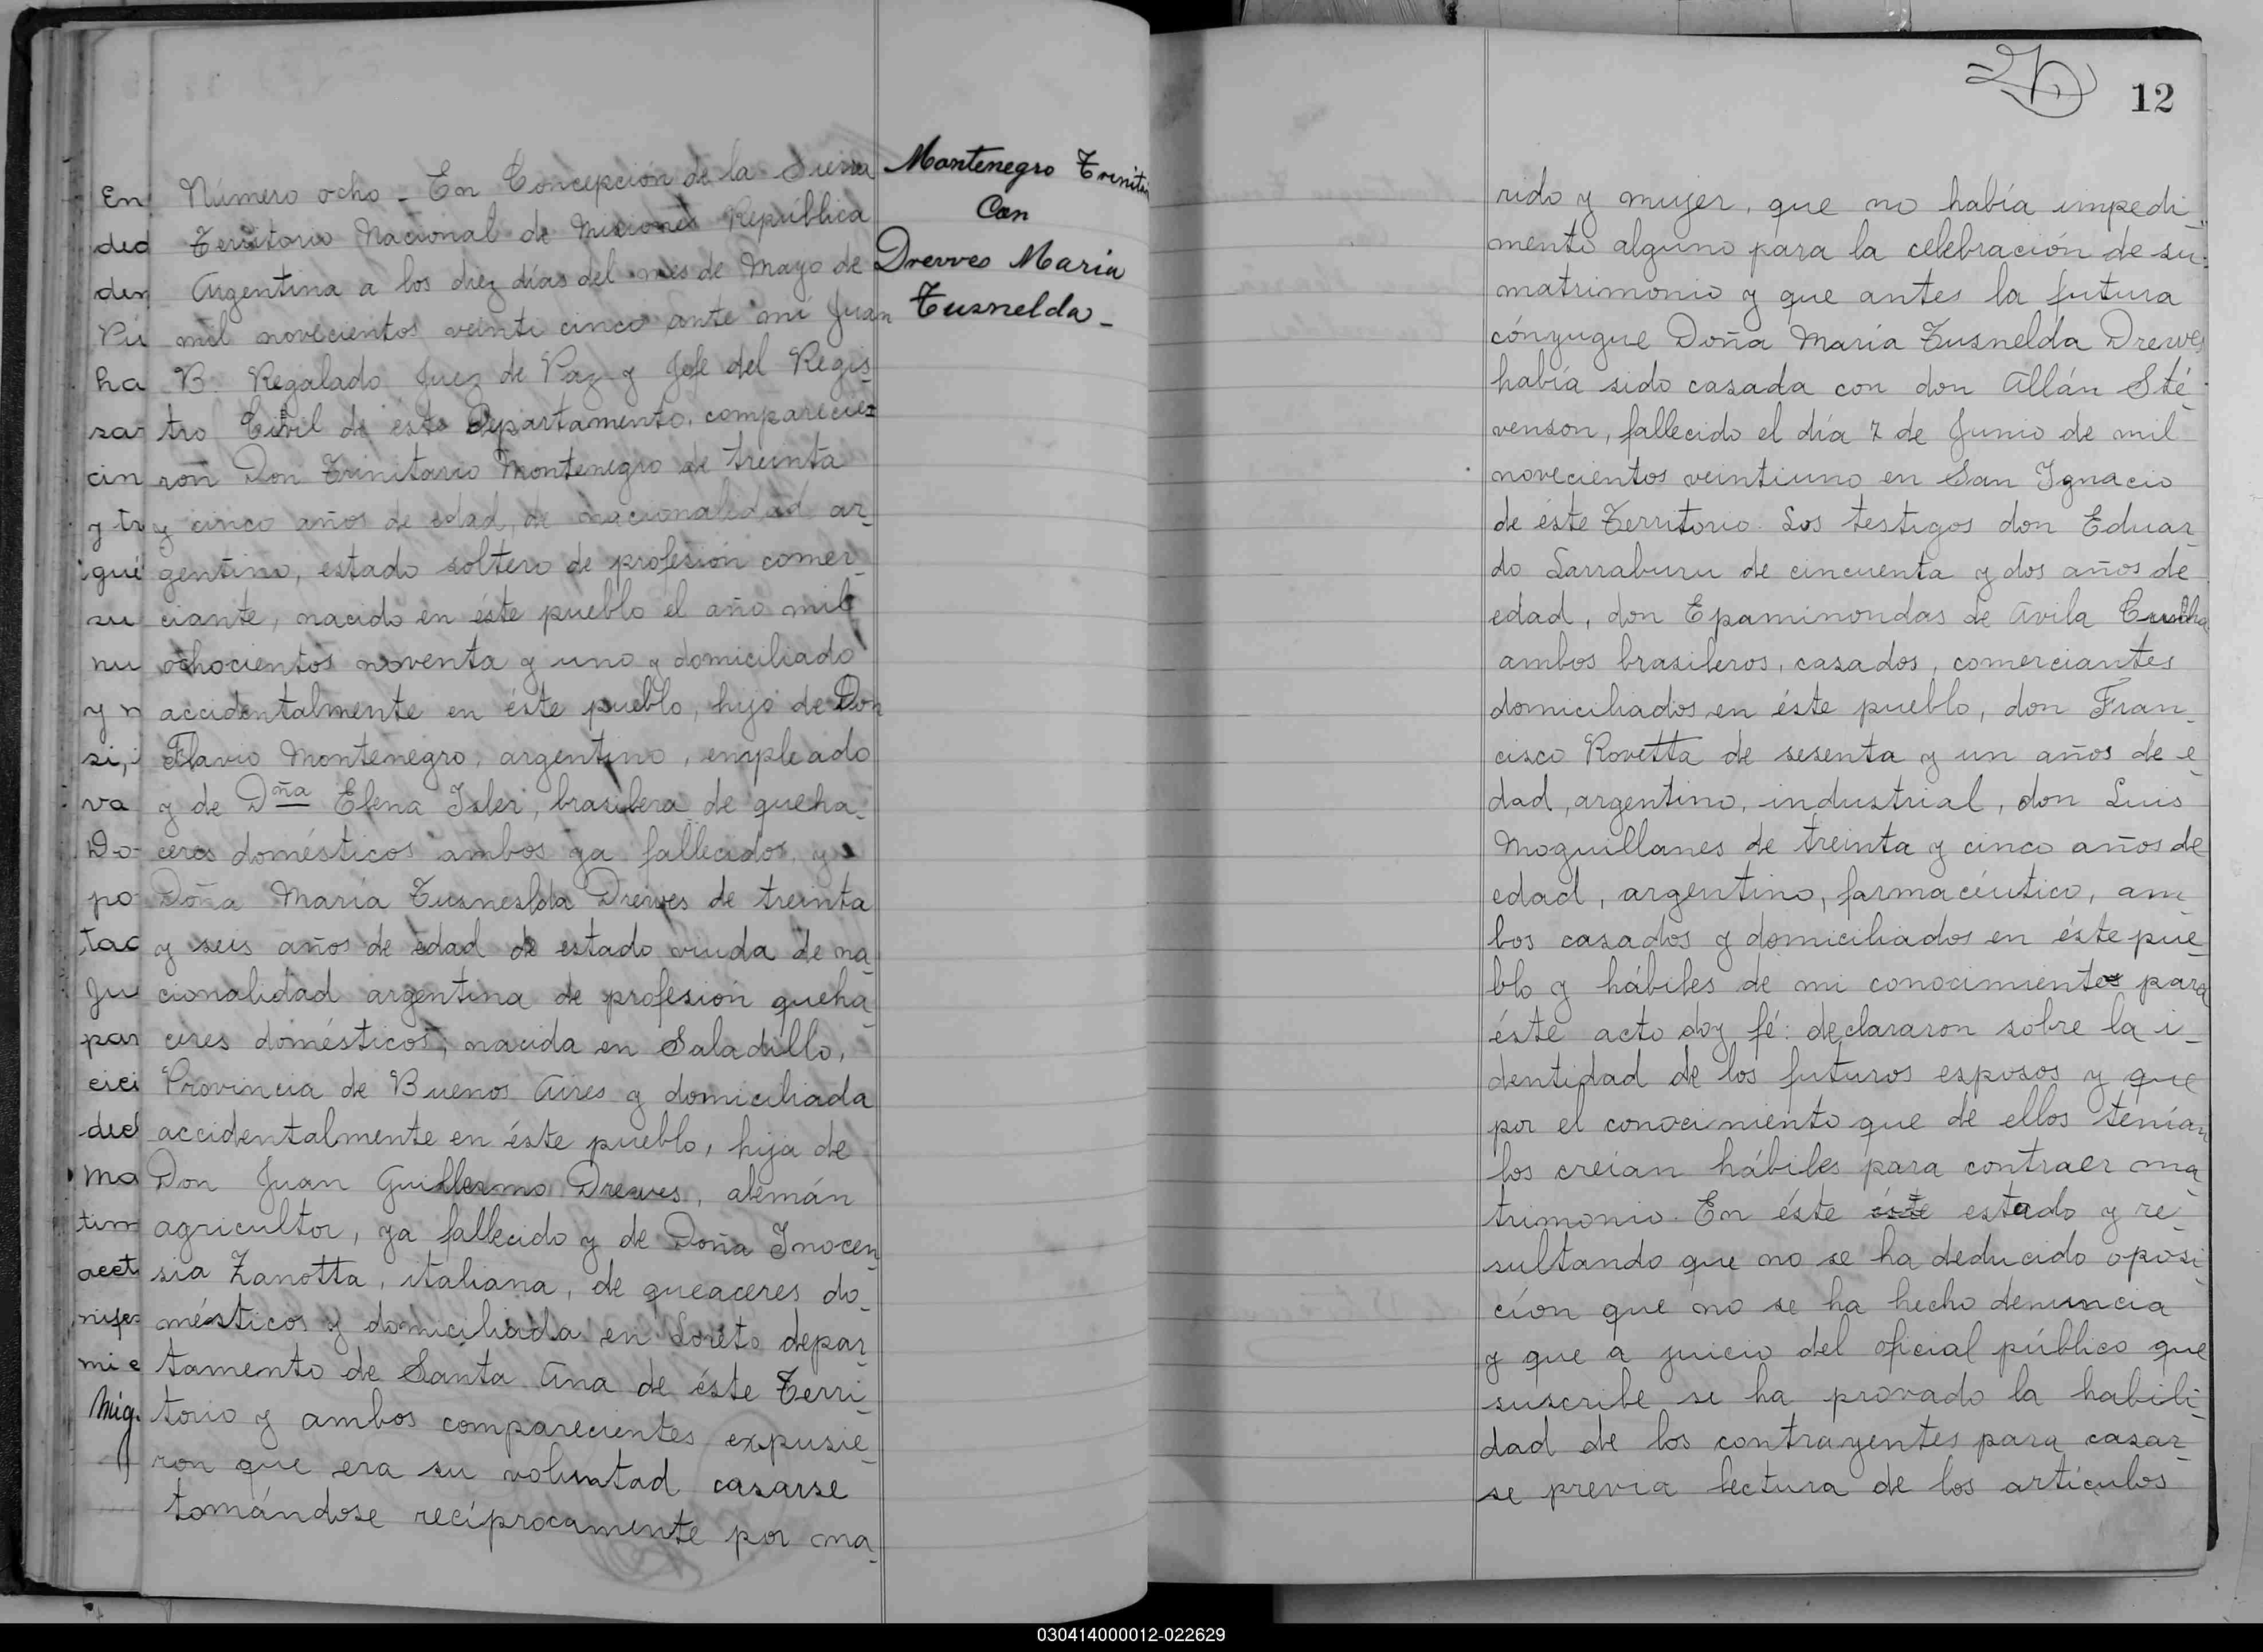 En
ded
den
Pú
ha
sar
cin
y tr
igué
su
nu
y n
si, i
va
Do-
po
tac
Ju
par
eici
ded
ma
tim
acet
nifes
mi e
Mig.
Número ocho - En Concepción de la Sierra
Territorio Nacional de Misiones República
Argentina a los diez días del mes de Mayo de
mil novecientos veinti cinco ante mi Juan
B. Regalado Juez de Paz y Jefe del Regis-
tro Civil de éste Departamento, comparecie=
ron Don Trinitario Montenegro de treinta
y cinco años de edad, de nacionalidad ar-
gentino, estado soltero de profesión comer-
ciante, nacido en éste pueblo el año mil
ochocientos noventa y uno y domiciliado
accidentalmente en éste pueblo, hijo de Don
Flavio Montenegro, argentino, empleado
y de Dña Elena Isler, brasilera de queha-
ceres domésticos ambos ya fallecidos, y
Doña María Tusneslda Drewes de treinta
y seis años de edad de estado viuda de na-
cionalidad argentina de profesión queha-
ceres domésticos, nacida en Saladillo,
Provincia de Buenos Aires y domiciliada
accidentalmente en éste pueblo, hija de
Don Juan Guillermo Drewes, alemán
agricultor, ya fallecido y de Doña Inocen-
sia Zanotta, italiana, de queaceres do-
mésticos y domiciliada en Loreto depar-
tamento de Santa Ana de éste Terri-
torio y ambos comparecientes expusie-
ron que era su voluntad casarse
tomándose recíprocamente por ma-
Montenegro Trinitar
Con
Drewes Maria
Tusnelda -
12
rido y mujer, que no había impedi-
mento alguno para la celebración de su-
matrimonio y que antes la futura
cónyugue Doña María Tusnelda Drewes
había sido casada con don Allán Sté-
venson, fallecido el día 7 de Junio de mil
novecientos veintiuno en San Ignacio
de éste Territorio. Los testigos don Eduar-
do Larraburu de cincuenta y dos años de
edad, don Epaminondas de Avila Cunha
ambos brasileros, casados, comerciantes
domiciliados en éste pueblo, don Fran-
cisco Rovetta de sesenta y un años de e-
dad, argentino, industrial, don Luis
Moguillanes de treinta y cinco años de
edad, argentino, farmacéutico, am-
bos casados y domiciliados en éste pue-
blo y hábiles de mi conocimiento para
éste acto doy fé: declararon sobre la i-
dentidad de los futuros esposos y que
por el conocimiento que de ellos tenían
los creían hábiles para contraer ma-
trimonio. En éste éste estado y re-
sultando que no se ha deducido oposi-
ción que no se ha hecho denuncia
y que a juicio del oficial público que
suscribe se ha provado la habili-
dad de los contrayentes para casar-
se previa lectura de los artículos
030414000012-022629